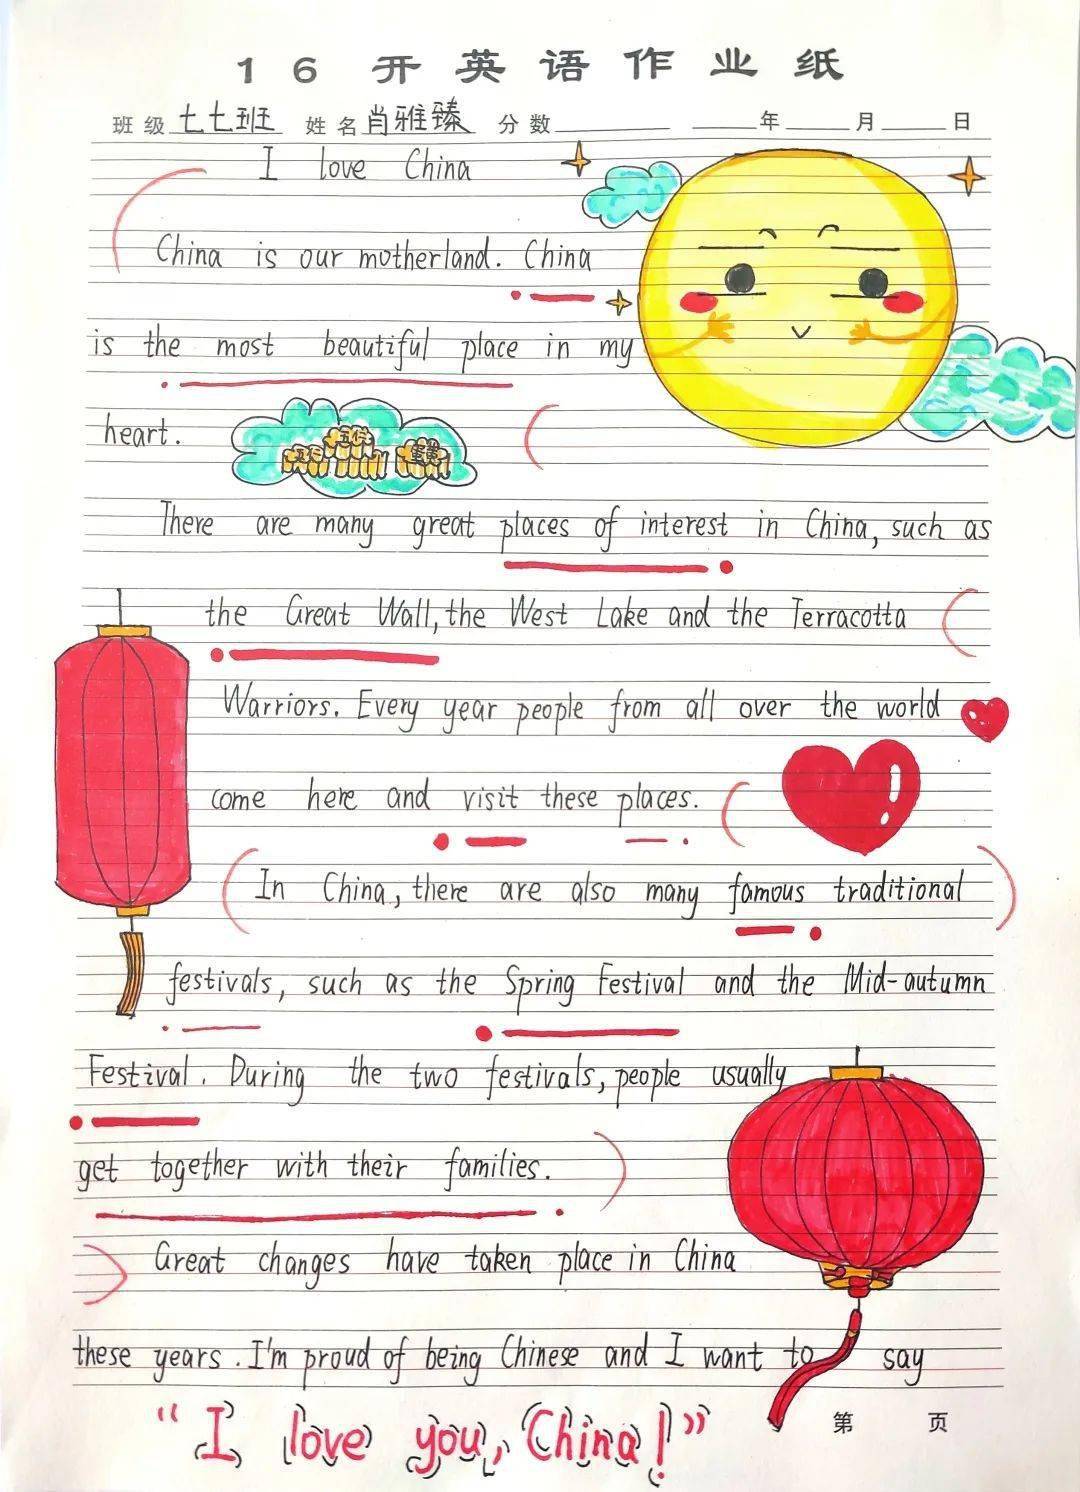 16开英语作业纸
班级 七七班 姓名 肖雅臻 分数 年 月 日
I love China
China is our motherland. China
is the most beautiful place in my
heart.
五仁 五仁 蛋黄
There are many great places of interest in China, such as
the Great Wall, the West Lake and the Terracotta
Warriors. Every year people from all over the world
come here and visit these places.
In China, there are also many famous traditional
festivals, such as the Spring Festival and the Mid-autumn
Festival. During the two festivals, people usually
get together with their families.
Great changes have taken place in China
these years. I'm proud of being Chinese and I want to say
第 页
“I love you, China!”